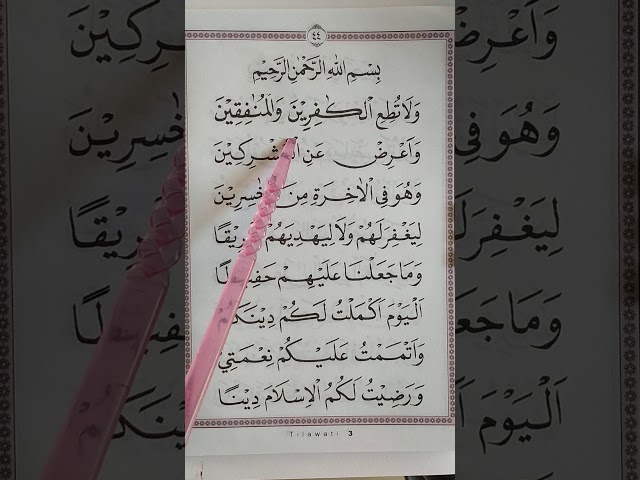 ٤٤
بِسْمِ اللهِ الرَّحْمٰنِ الرَّحِيْمِ
وَلَا تُطِعِ الْكٰفِرِيْنَ وَالْمُنٰفِقِيْنَ
وَاَعْرِضْ عَنِ الْمُشْرِكِيْنَ
وَهُوَ فِى الْاٰخِرَةِ مِنَ الْخٰسِرِيْنَ
لِيَغْفِرَ لَهُمْ وَلَا لِيَهْدِيَهُمْ طَرِيْقًا
وَمَا جَعَلْنَا عَلَيْهِمْ حَفِيْظًا
اَلْيَوْمَ اَكْمَلْتُ لَكُمْ دِيْنَكُمْ
وَاَتْمَمْتُ عَلَيْكُمْ نِعْمَتِيْ
وَرَضِيْتُ لَكُمُ الْاِسْلَامَ دِيْنًا
Tilawati 3